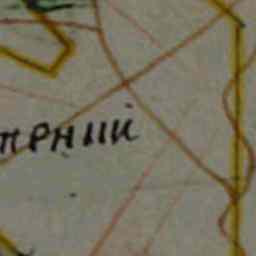 терний